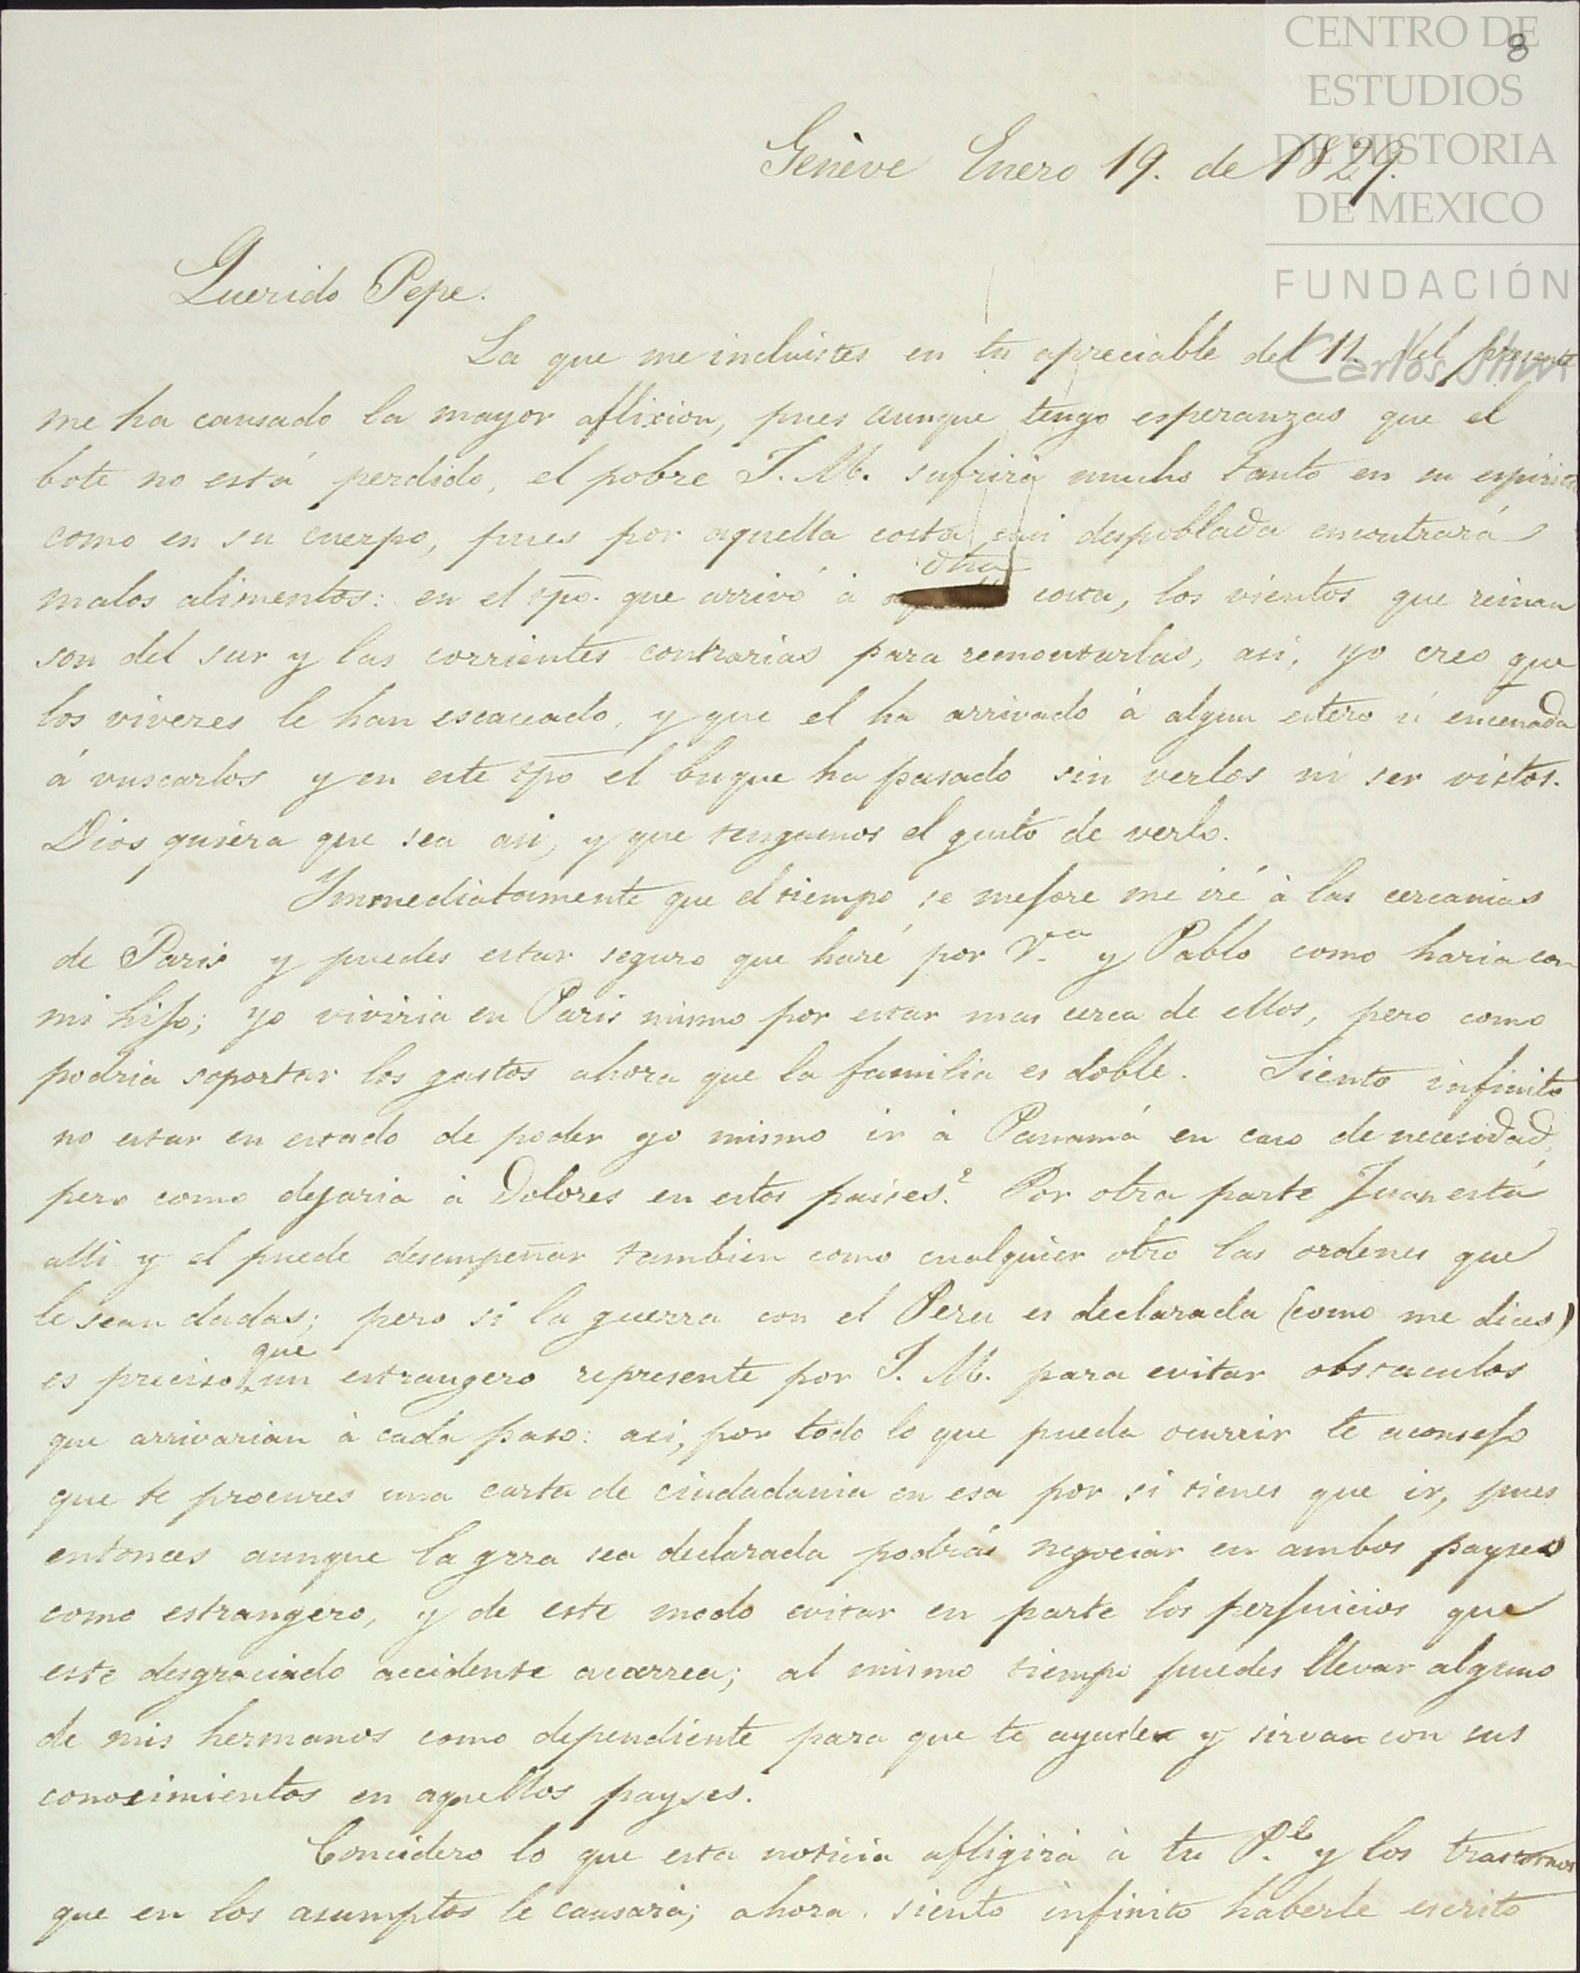 CENTRO DE
8
ESTUDIOS
DE HISTORIA
DE MEXICO
FUNDACIÓN
Carlos Slim
Genève Enero 19. de 1829.
Querido Pepe.
La que me incluistes en tu apreciable del 11. del presente
me ha causado la mayor aflixion, pues aunque tengo esperanzas que el
bote no está perdido, el pobre J. M. sufrirá mucho tanto en su espiritu
como en su cuerpo, pues por aquella costa casi despoblada encontrará
malos alimentos: en el tpō. que arrivó à otra costa, los vientos que reinan
son del sur y las corrientes contrarias para remontarlas, asi, yo creo que
los viveres le han escaceado, y que el ha arrivado à algun estero ú encenada
á vuscarlos y en este tpō el buque ha pasado sin verlos ni ser vistos.
Dios quiera que sea asi, y que tengamos el gusto de verlo.
Ynmediatamente que el tiempo se mejore me iré à las cercanias
de Paris y puedes estar seguro que haré por V.ª y Pablo como haria con
mi hijo; yo viviria en Paris mismo por estar mas cerca de ellos, pero como
podria soportar los gastos ahora que la familia es doble. Siento infinito
no estar en estado de poder yo mismo ir à Panamá en caso de necesidad,
pero como dejaria à Dolores en estos paises? Por otra parte Juan está
alli y el puede desempeñar tambien como cualquier otro las ordenes que
le sean dadas; pero si la guerra con el Peru es declarada (como me dices)
es preciso que un estrangero represente por J. M. para evitar obstaculos
que arrivarian à cada paso: asi, por todo lo que pueda ocurrir te aconsejo
que te procures una carta de ciudadania en esa por si tienes que ir, pues
entonces aunque la grra sea declarada podrás negociar en ambos payses
como estrangero, y de este modo evitar en parte los perjuicios que
este desgraciado accidente acarrea; al mismo tiempo puedes llevar alguno
de mis hermanos como dependiente para que te ayuden y sirvan con sus
conocimientos en aquellos payses.
Concidero lo que esta noticia afligirá à tu P.e y los trastornos
que en los asumptos le causará; ahora siento infinito haberle escrito